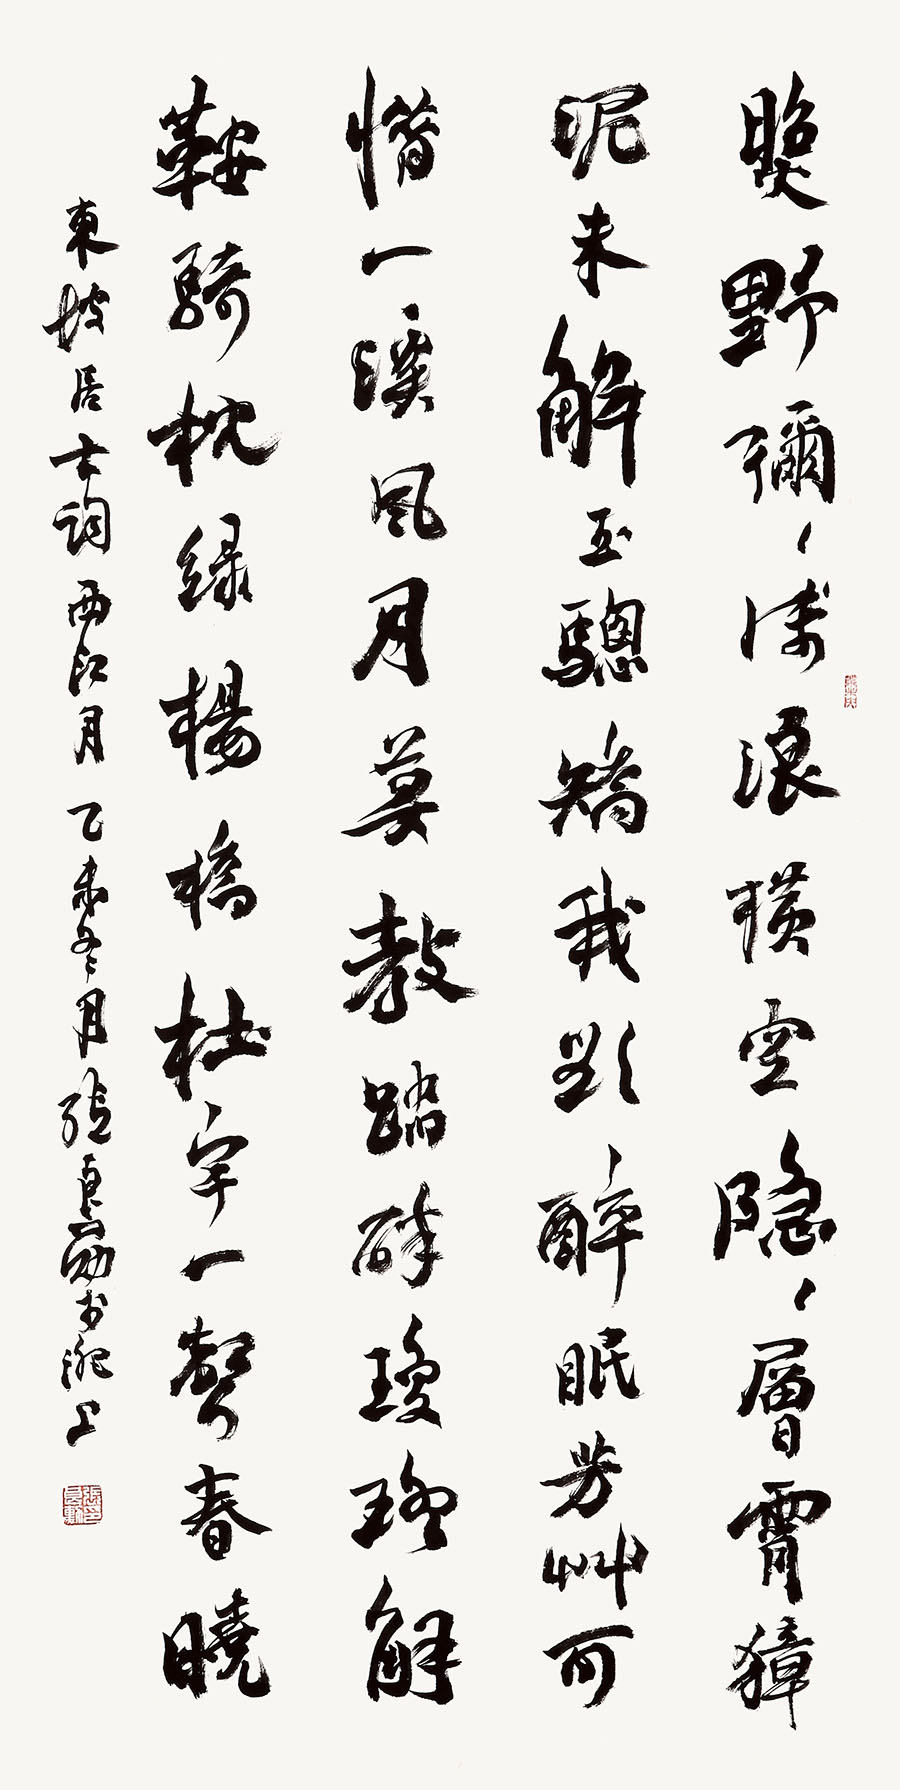 照野彌、淺浪橫空隱、層霄獐
泥未解玉驄矯我欲醉眠芳艸可
惜一溪風月莫教踏碎瓊瑤解
鞍騎枕綠楊橋杜宇一聲春曉
東坡居士詞西江月乙未冬月張良勛书淝上